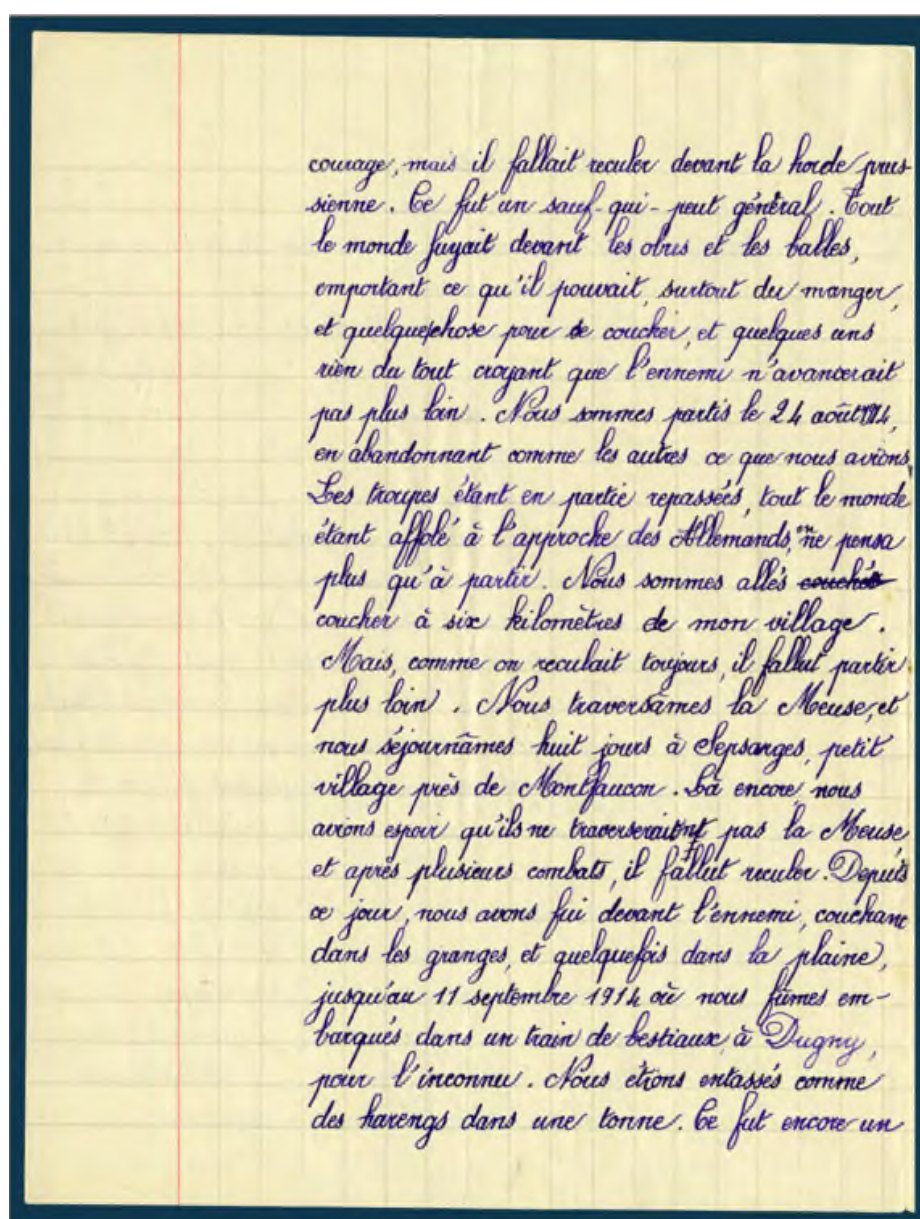 courage, mais il fallait reculer devant la horde prus-
sienne. Ce fut un sauf-qui-peut général. Tout
le monde fuyait devant les obus et les balles,
emportant ce qu'il pouvait, surtout du manger,
et quelquechose pour se coucher, et quelques uns
rien du tout croyant que l'ennemi n'avancerait
pas plus loin. Nous sommes partis le 24 août 1914,
en abandonnant comme les autres ce que nous avions.
Les troupes étant en partie repassées, tout le monde
étant affolé à l'approche des Allemands, on ne pensa
plus qu'à partir. Nous sommes allés couchés
coucher à six kilomètres de mon village.
Mais, comme on reculait toujours, il fallut partir
plus loin. Nous traversâmes la Meuse, et
nous séjournâmes huit jours à Sepsarges, petit
village près de Montfaucon. Là encore, nous
avions espoir qu'ils ne traverseraient pas la Meuse
et après plusieurs combats, il fallut reculer. Depuis
ce jour, nous avons fui devant l'ennemi, couchant
dans les granges, et quelquefois dans la plaine,
jusqu'au 11 septembre 1914 où nous fûmes em-
barqués dans un train de bestiaux à Dugny,
pour l'inconnu. Nous étions entassés comme
des harengs dans une tonne. Ce fut encore un